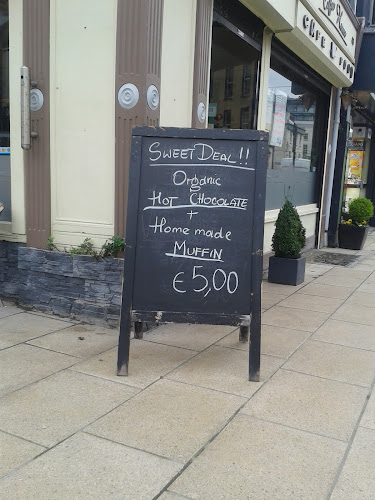 SWEET DEAL!!
Organic
HOT CHOCOLATE
+
Home made
MUFFIN
€5,00